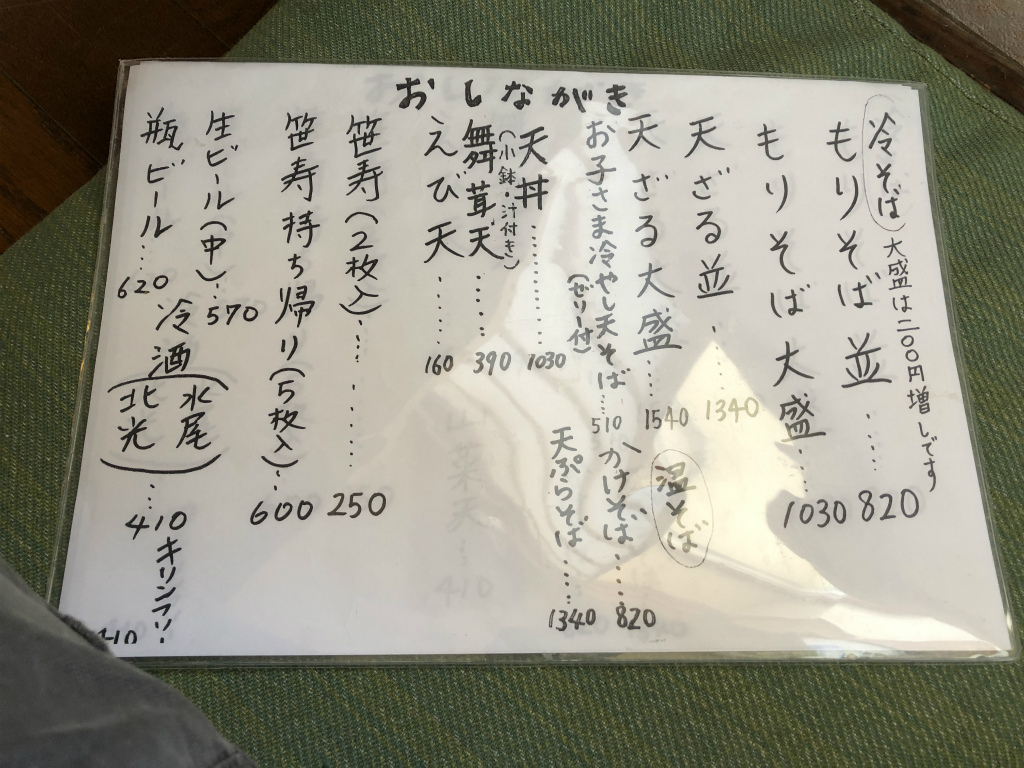 おしながき
冷そば 大盛は二〇〇円増しです
もりそば 並…. 820
もりそば大盛… 1030
天ざる並…… 1340
天ざる大盛…. 1540
温そば
お子さま冷やし天そば… 510
(ゼリー付)
かけそば…… 820
天ぷらそば…… 1340
天丼……… 1030
(小鉢・汁付き)
舞茸天…… 390
えび天…… 160
笹寿(2枚入)……… 250
笹寿持ち帰り(5枚入)… 600
生ビール(中)… 570
瓶ビール… 620
冷酒(水尾 北光)… 410
キリンフリー